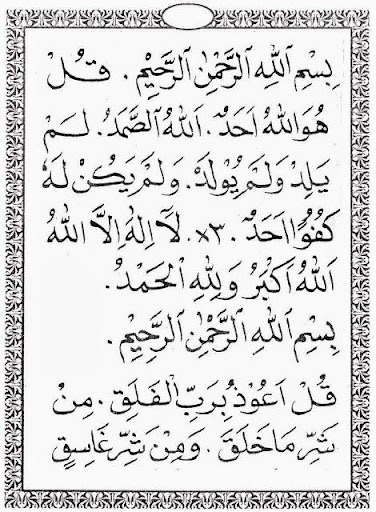 بِسْمِ اللهِ الرَّحْمٰنِ الرَّحِيْمِ. قُلْ
هُوَ اللهُ اَحَدٌ. اَللهُ الصَّمَدُ. لَمْ
يَلِدْ وَلَمْ يُوْلَدْ. وَلَمْ يَكُنْ لَهُ
كُفُوًا اَحَدٌ. ×٣. لَا اِلٰهَ اِلَّا اللهُ
اَللهُ اَكْبَرُ وَلِلّٰهِ الْحَمْدُ.
بِسْمِ اللهِ الرَّحْمٰنِ الرَّحِيْمِ.
قُلْ اَعُوْذُ بِرَبِّ الْفَلَقِ. مِنْ
شَرِّ مَا خَلَقَ. وَمِنْ شَرِّ غَاسِقٍ